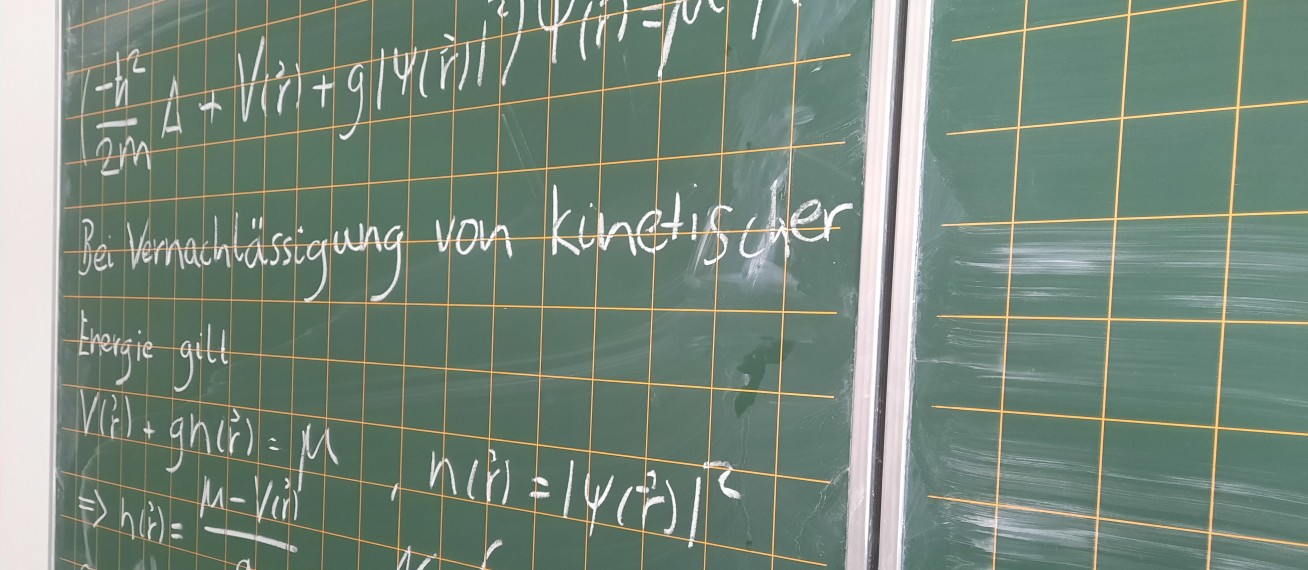 (-ħ²/2m Δ + V(r⃗) + g|ψ(r⃗)|²) ψ(r⃗) = μ
Bei Vernachlässigung von kinetischer
Energie gilt
V(r⃗) + gn(r⃗) = μ , n(r⃗) = |ψ(r⃗)|²
⇒ n(r⃗) = μ - V(r⃗)